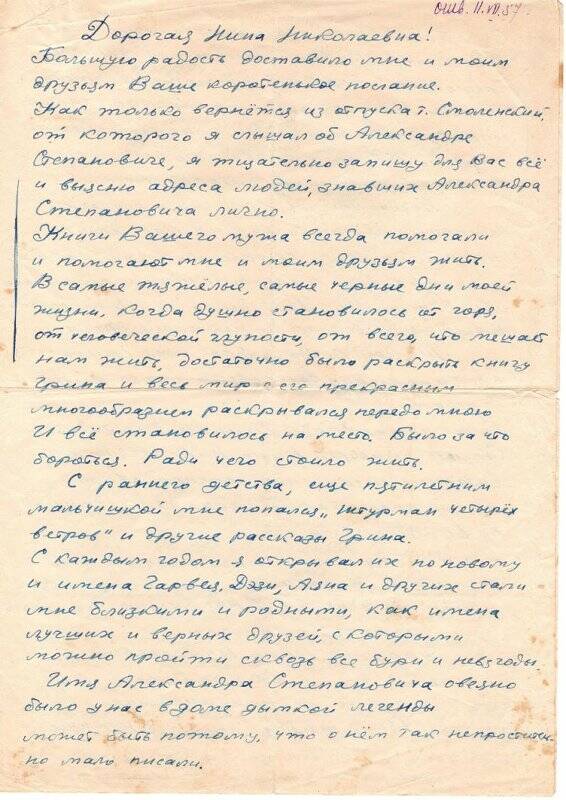 отв. 11.VII.57.
Дорогая Нина Николаевна!
Большую радость доставило мне и моим
друзьям Ваше коротенькое послание.
Как только вернётся из отпуска т. Смоленский,
от которого я слышал об Александре
Степановиче, я тщательно запишу для Вас всё
и выясню адреса людей, знавших Александра
Степановича лично.
Книги Вашего мужа всегда помогали
и помогают мне и моим друзьям жить.
В самые тяжёлые, самые черные дни моей
жизни, когда душно становилось от горя,
от человеческой глупости, от всего, что мешает
нам жить, достаточно было раскрыть книгу
Грина и весь мир с его прекрасным
многообразием раскрывался передо мною
И всё становилось на место. Было за что
бороться. Ради чего стоило жить.
С раннего детства, еще пятилетним
мальчишкой мне попался „Штурман четырёх
ветров" и другие рассказы Грина.
С каждым годом я открывал их по новому
и имена Гарвея, Дэзи, Аяна и других стали
мне близкими и родными, как имена
лучших и верных друзей, с которыми
можно пройти сквозь все бури и невзгоды.
Имя Александра Степановича овеяно
было у нас в доме дымкой легенды
может быть потому, что о нём так непроститель-
но мало писали.